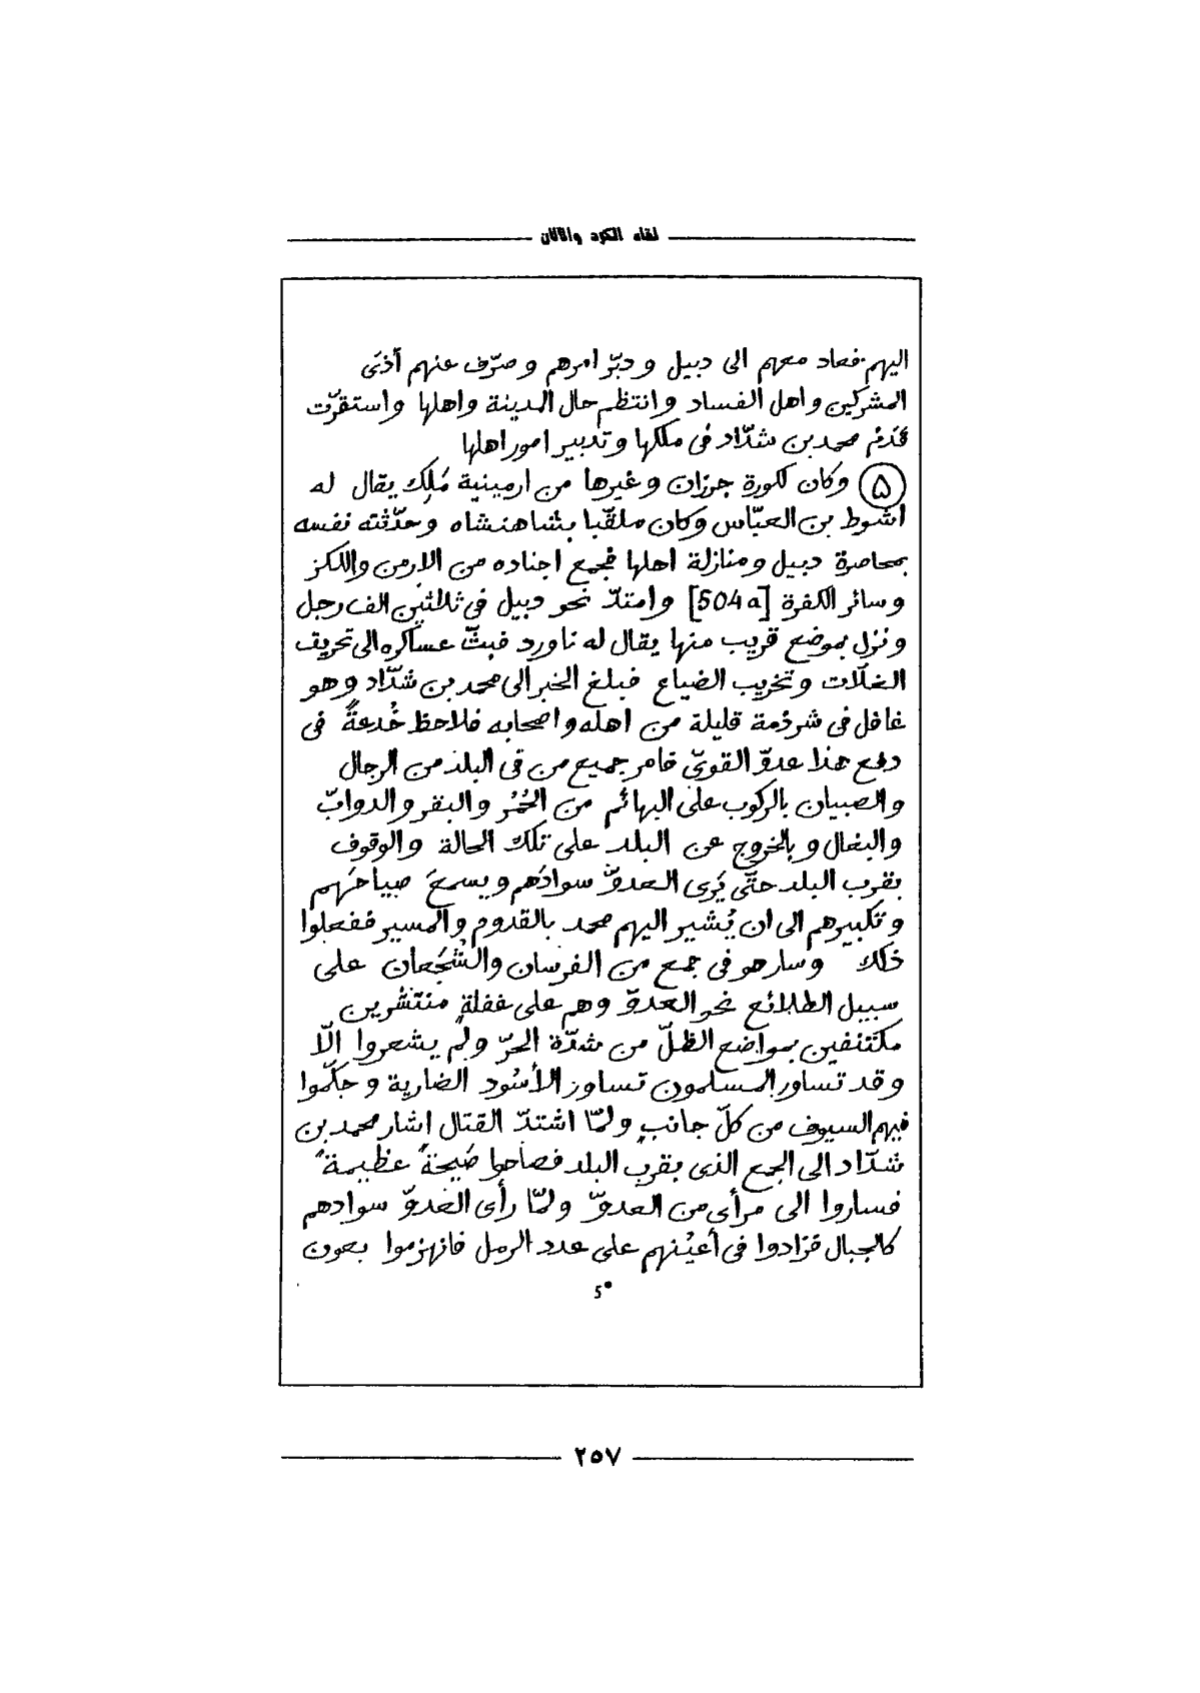 لقاء الكرد واللان
اليهم فعاد معهم الى دبيل و دبّر امرهم و صرّف عنهم أذَى
المشركين و اهل الفساد و انتظم حال المدينة و اهلها و استقرّت
قدَم محمد بن شدّاد فى ملكها و تدبير امور اهلها
(٥) وكان لكورة جرزان و غيرها من ارمينية مَلِك يقال له
اشوط بن العبّاس وكان ملقّبا بشاهنشاه و حدّثته نفسه
بمحاصرة دبيل و منازلة اهلها فجمع اجناده من الارمن واللكز
و سائر الكفرة [504a] و امتدّ نحو دبيل فى ثلثين الف رجل
و نزل بموضع قريب منها يقال له ناورد فبثّ عساكره الى تحريق
الغلّات و تخريب الضياع فبلغ الخبر الى محمد بن شدّاد و هو
غافل فى شرذمة قليلة من اهله و اصحابه فلاحظ خُدعةً فى
دفع هذا عدوّ القوىّ فامر جميع من فى البلد من الرجال
و الصبيان بالركوب على البهائم من الحُمُر و البقر و الدوابّ
و البغال و بالخروج عن البلد على تلك الحالة و الوقوف
بقرب البلد حتّى يَرى العدوّ سوادَهم و يسمعَ صياحَهم
و تكبيرهم الى ان يُشير اليهم محمد بالقدوم و المسير ففعلوا
ذلك و سار هو فى جمع من الفرسان والشُجَعان على
سبيل الطلائع نحو العدوّ و هم على غفلةٍ منتشرين
مكتنفين بمواضع الظلّ من شدّة الحرّ ولم يشعروا الّا
و قد تساور المسلمون تساوز الأسُود الضارية و حكّموا
فيهم السيوف من كلّ جانبٍ ولمّا اشتدّ القتال اشار محمد بن
شدّاد الى الجمع الذى بقرب البلد فصاحوا صَيحةً عظيمةً
فساروا الى مرأى من العدوّ ولمّا رأى العدوّ سوادهم
كالجبال فزادوا فى أعيُنهم على عدد الرمل فانهزموا بعون
5•
٢٥٧